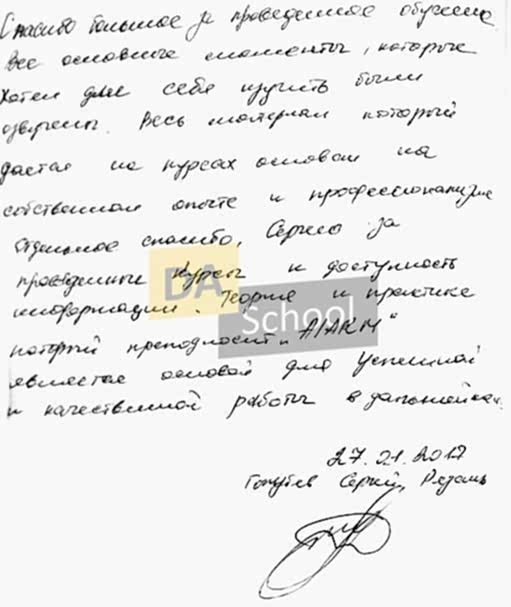 Спасибо большое за проведенное обучение.
Все основные моменты, которые
Хотел для себя изучить были
озвучены. Весь материал который
дается на курсах основан на
собственном опыте и профессионализме
отдельное спасибо, Сергею за
проведенные курсы и доступность
информации. Теория и практика
DA
School
который преподносит "A/ARM"
является основой для успешной
и качественной работы в дальнейшем.
27.01.2017
Голубев Сергей, Рязань